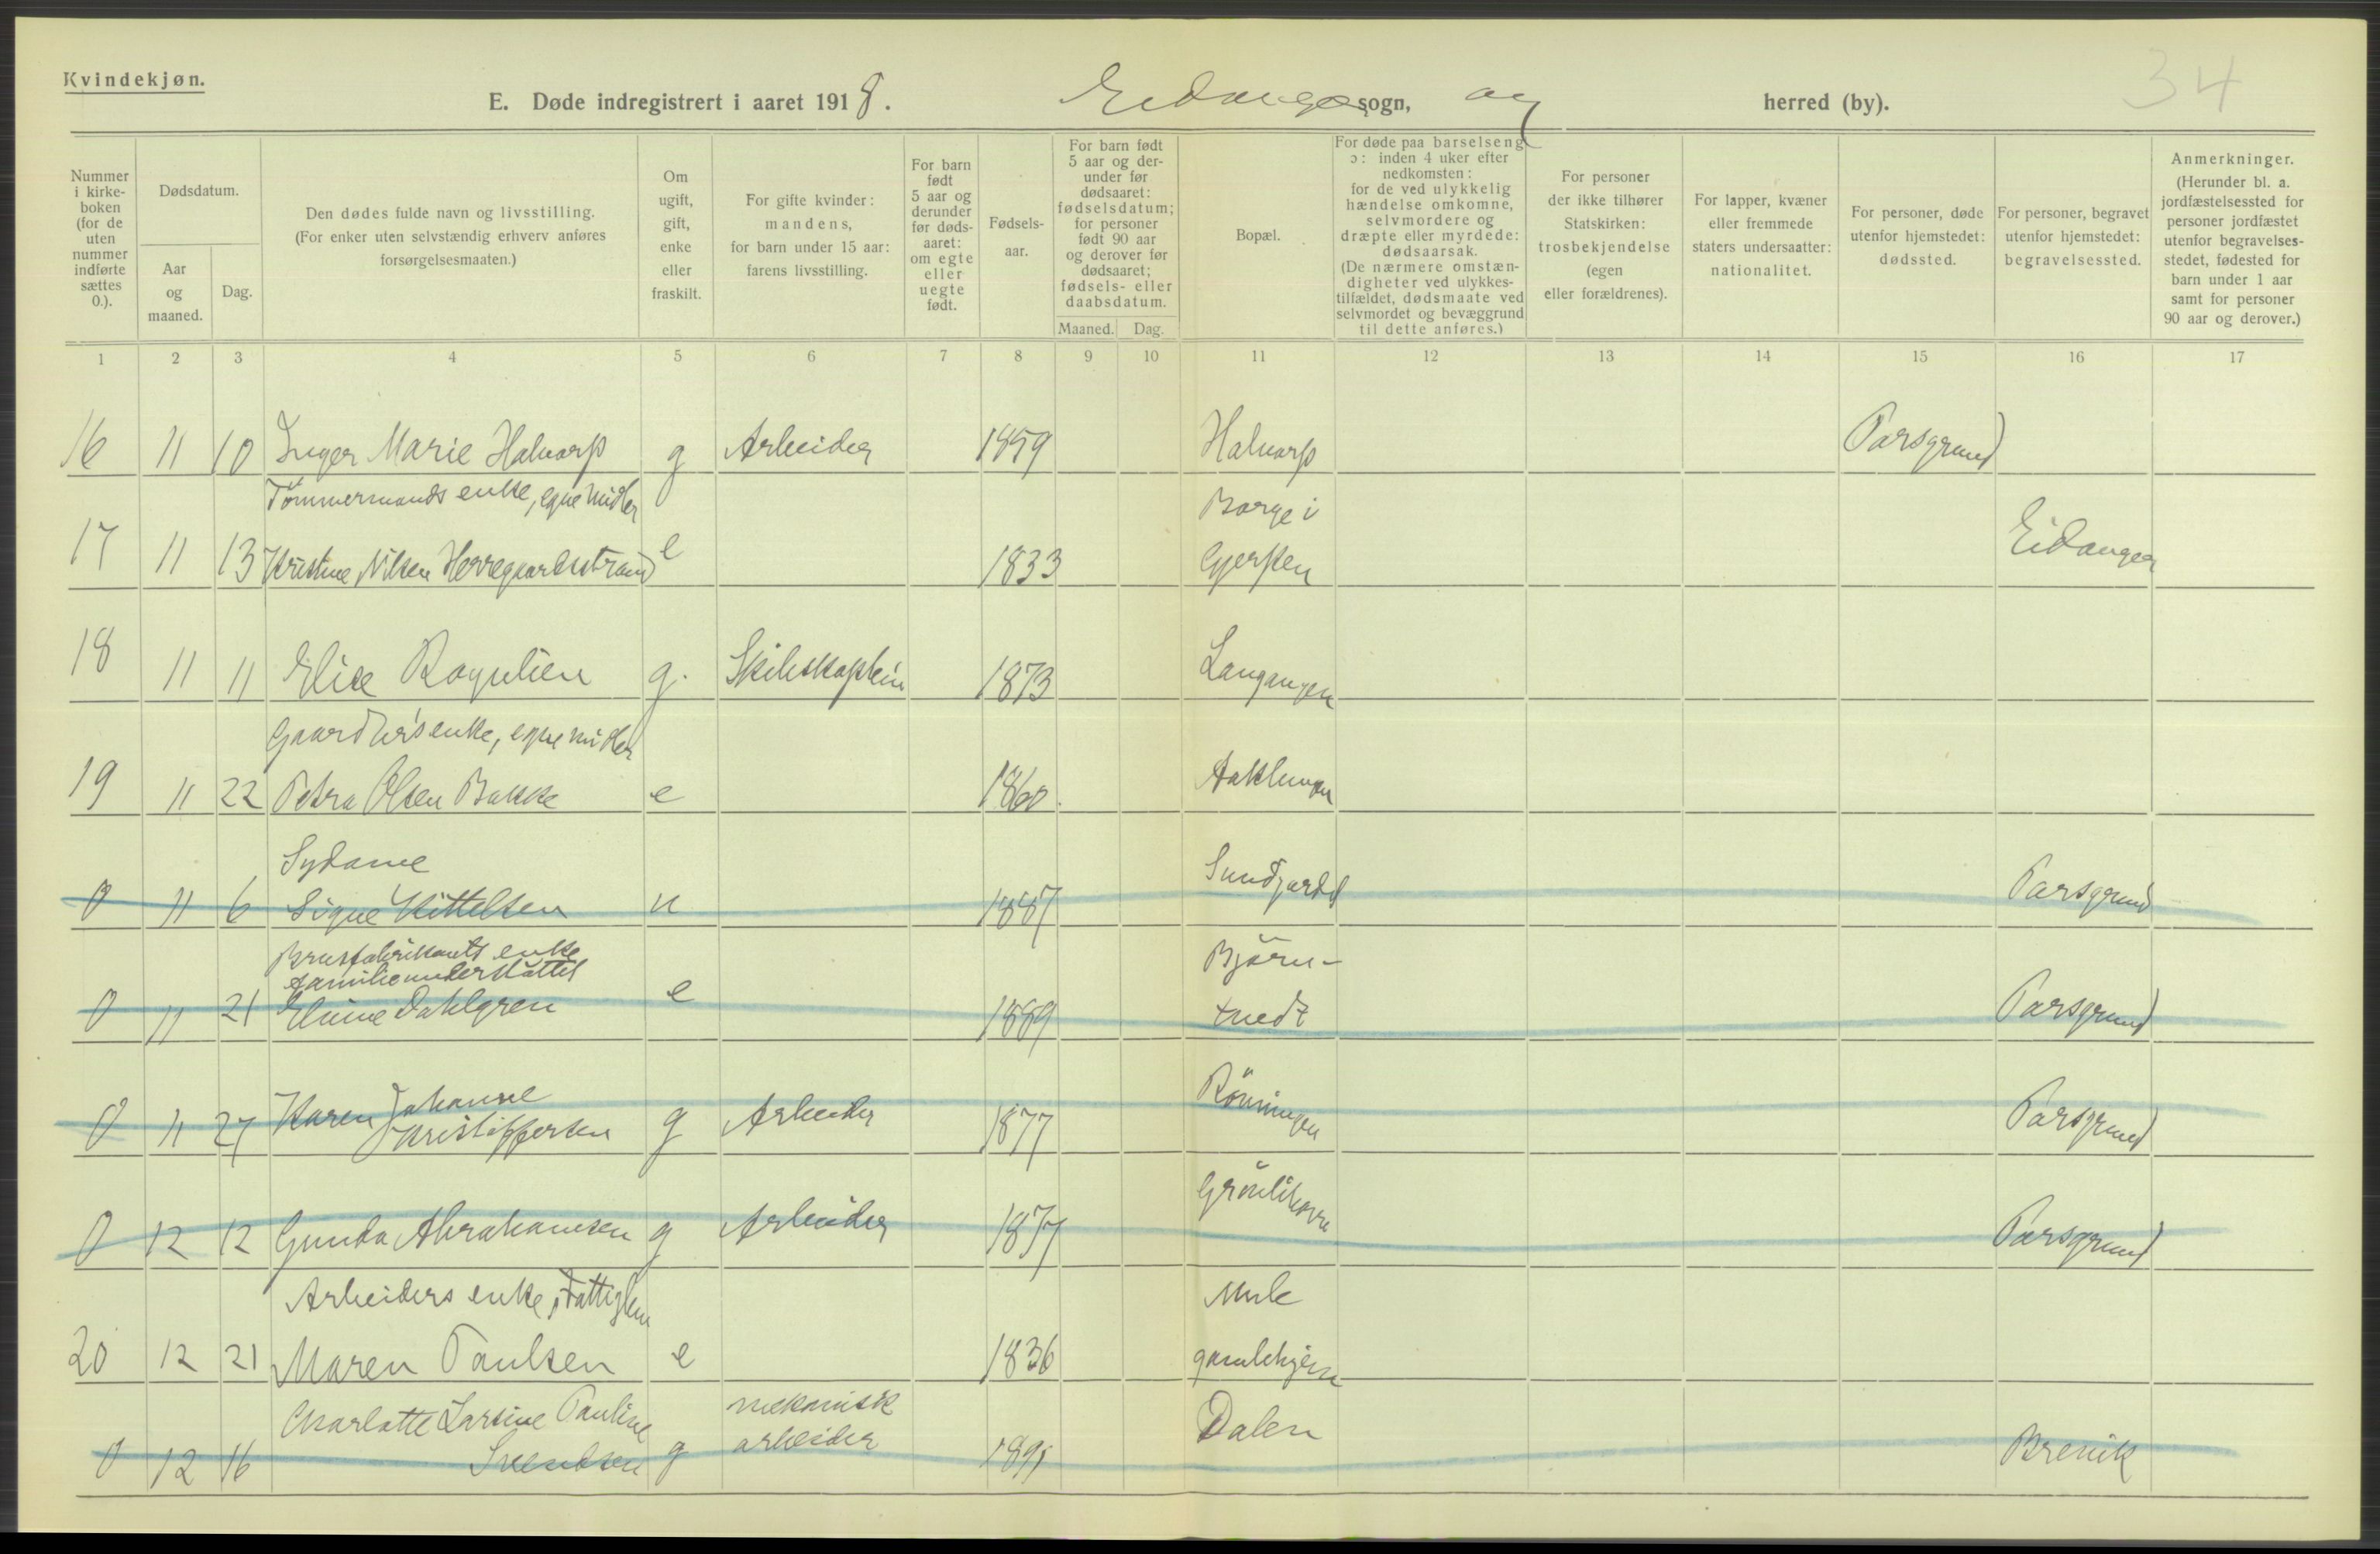 Kvindekjøn.
34
E. Døde indregistrert i aaret 1918. Eidanger sogn, og herred (by).
Nummer i kirke-boken (for de uten nummer indførte sættes 0.).
Dødsdatum.
Aar og maaned.
Dag.
Den dødes fulde navn og livsstilling.
(For enker uten selvstændig erhverv anføres
forsørgelsesmaaten.)
Om ugift, gift, enke eller fraskilt.
For gifte kvinder: mandens, for barn under 15 aar: farens livsstilling.
For barn født 5 aar og derunder før døds-aaret: om egte eller uegte født.
Fødsels-aar.
For barn født 5 aar og der-under før dødsaaret: fødselsdatum; for personer født 90 aar og derover før dødsaaret; fødsels- eller daabsdatum.
Maaned. Dag.
Bopæl.
For døde paa barselseng ɔ: inden 4 uker efter nedkomsten: for de ved ulykkelig hændelse omkomne, selvmordere og dræpte eller myrdede: dødsaarsak. (De nærmere omstæn-digheter ved ulykkes-tilfældet, dødsmaate ved selvmordet og bevæggrund til dette anføres.)
For personer der ikke tilhører Statskirken: trosbekjendelse (egen eller forældrenes).
For lapper, kvæner eller fremmede staters undersaatter: nationalitet.
For personer, døde utenfor hjemstedet: dødssted.
For personer, begravet utenfor hjemstedet: begravelsessted.
Anmerkninger. (Herunder bl. a. jordfæstelsessted for personer jordfæstet utenfor begravelses-stedet, fødested for barn under 1 aar samt for personer 90 aar og derover.)
1 2 3 4 5 6 7 8 9 10 11 12 13 14 15 16 17
16 11 10 Inger Marie Halvarp g Arbeider 1859 Halvarp Porsgrund
Tömmermands enke, egne midler Borge i
17 11 13 Kristine Nilsen Herregaardsstrand e 1833 Gjerpen Eidanger
18 11 11 Elise Rognlien g. Skibskaptein 1873 Langangen
Gaardbr's enke, egne midler
19 11 22 Petra Olsen Bakke e 1860 Aaklungen
Sydame
0 11 6 Signe Kittelsen u 1887 Sundjordet Porsgrund
Brusfabrikants enke Björn-
familieunderstöttet
0 11 21 Elvine Dahlgren e 1889 tvedt Porsgrund
Karen Johanne
0 11 27 Kristoffersen g Arbeider 1877 Rönningen Porsgrund
0 12 12 Gunda Abrahamsen g Arbeider 1877 Grönlikova Porsgrund
Arbeiders enke, Fattiglem Mule
20 12 21 Maren Paulsen e 1836 gamlehjem
Charlotte Larsine Pauline mekanisk Dalen
0 12 16 Svendsen g arbeider 1891 Brevik